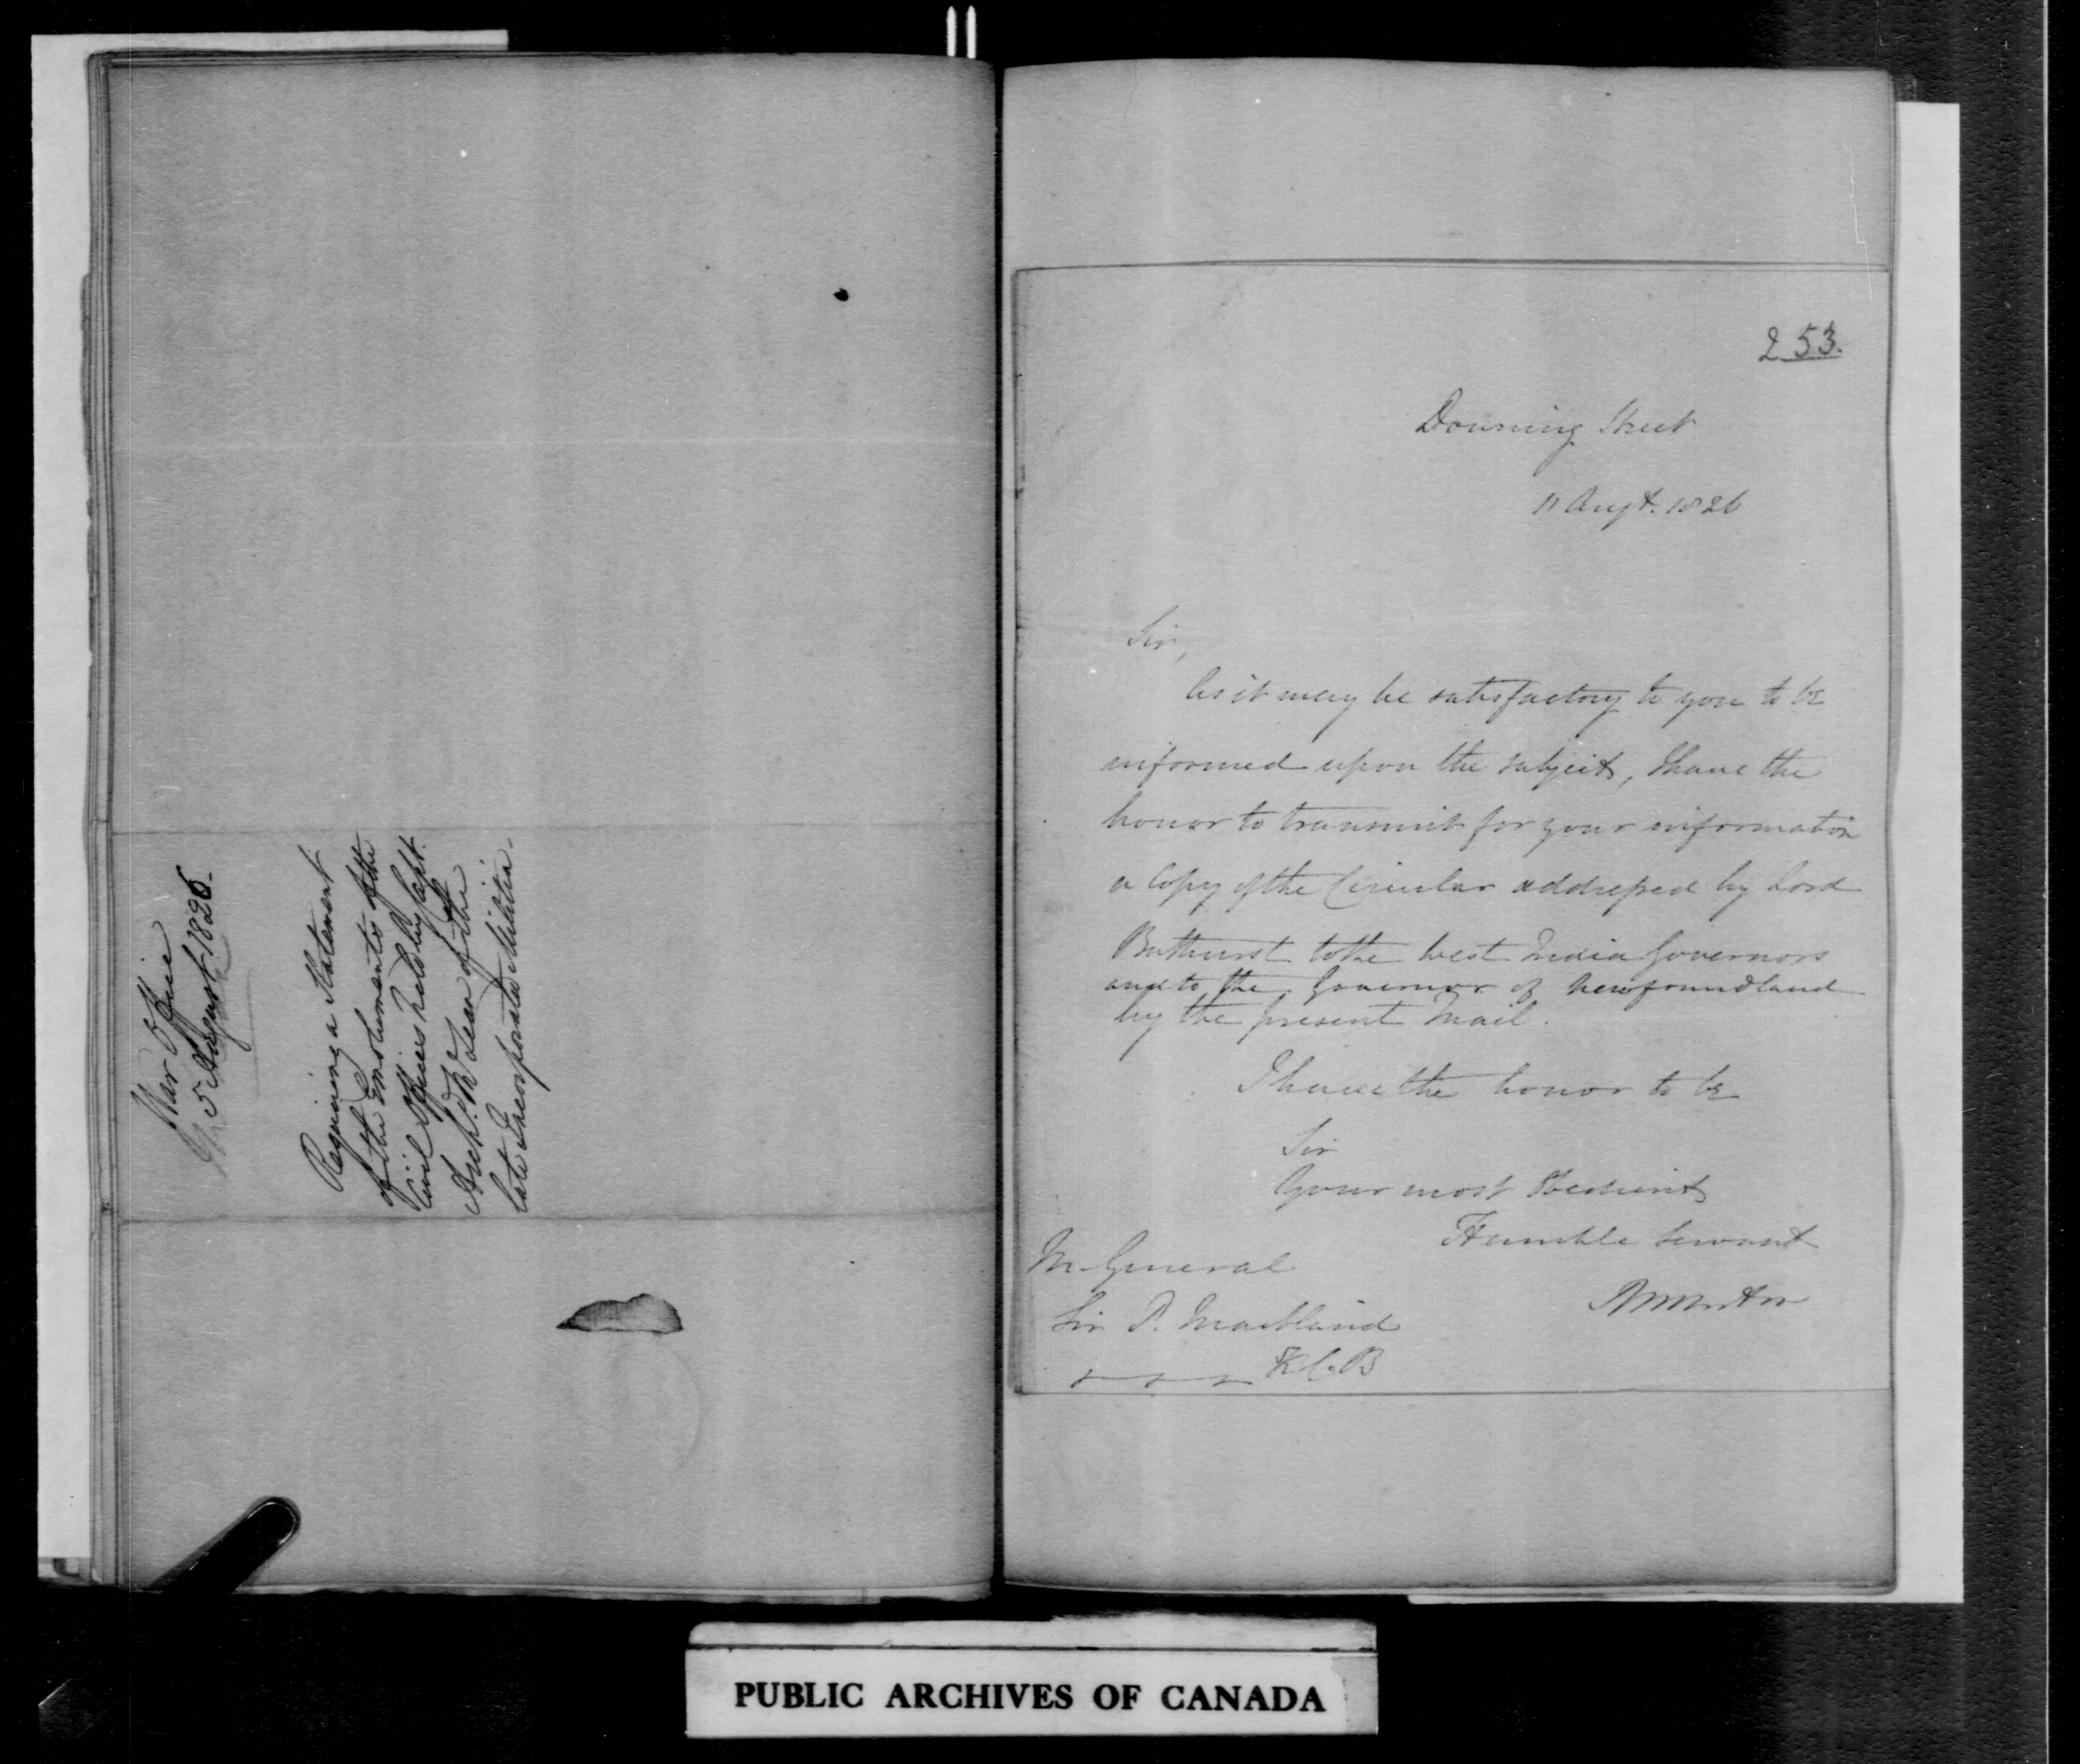 War Office
5 August 1826.
Requiring a Statement
of the Emoluments of the
Civil Offices held by Capt.
Arch. McLean of the
late Incorporated Militia.
253.
Downing Street
11 Augt. 1826
Sir,
As it may be satisfactory to you to be
informed upon the subject, I have the
honor to transmit for your information
a Copy of the Circular addressed by Lord
Bathurst to the West India Governors
and to the Governor of Newfoundland
by the present Mail.
I have the honor to be
Sir
Your most Obedient
Humble Servant
M. General
Sir P. Maitland
K.C.B
PUBLIC ARCHIVES OF CANADA